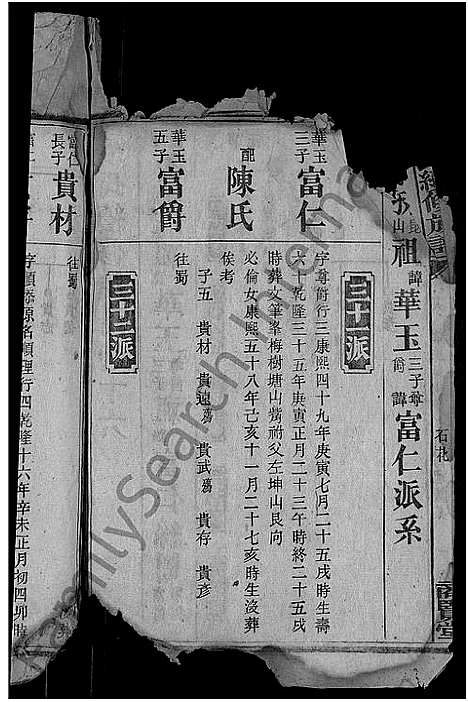 祖諱華玉三子尊爵諱富仁派系
石花
三十一派
華玉三子富仁
字尊爵行三康熙四十九年庚寅七月二十五戌時生壽
六十乾隆三十五年庚寅正月二十三午時終二十五戌
時葬文筆峯梅樹塘山紫祔父左坤山艮向
配陳氏
必倫女康熙五十八年己亥十一月二十七亥時生沒葬
俟考
子五 貴材 貴遠 貴武 貴存 貴彥
華玉五子富爵
往蜀
三十二派
富仁長子貴材
往蜀
行四乾隆十六年辛未正月初四卯時
FamilySearch International